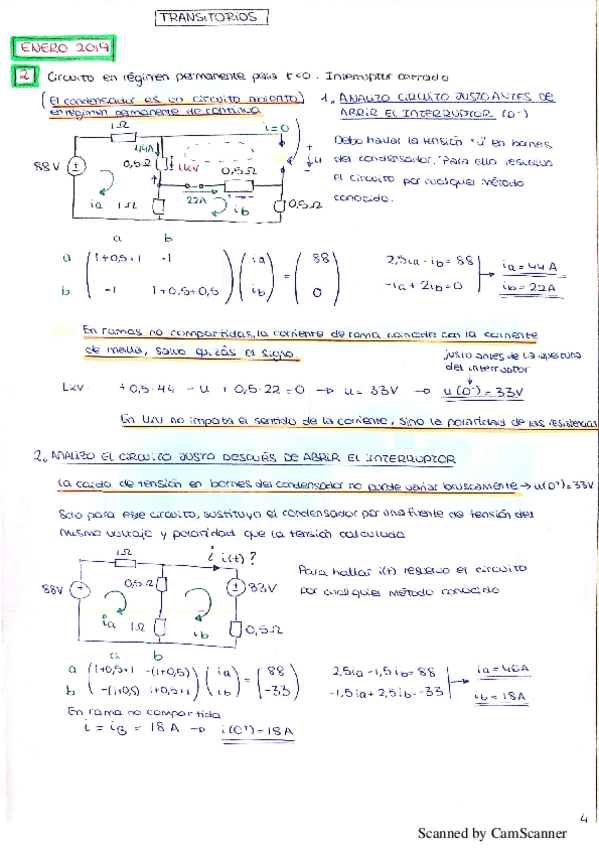 TRANSITORIOS
ENERO 2019
2 Circuito en régimen permanente para t<0. Interruptor cerrado
(El condensador es un circuito abierto)
en régimen permanente de continua
1. ANALIZO CIRCUITO JUSTO ANTES DE
ABRIR EL INTERRUPTOR (0⁻)
Debo hallar la tensión "u" en bornes
del condensador. Para ello resuelvo
el circuito por cualquier método
conocido.
1Ω
i=0
44A
88V
0,5Ω
LKV
0,5Ω
u
ia
1Ω
22A
ib
0,5Ω
a b
a (1+0,5+1 -1) (ia) = (88)
b (-1 1+0,5+0,5) (ib) (0)
2,5ia - ib = 88
-ia + 2ib = 0
ia = 44A
ib = 22A
En ramas no compartidas, la corriente de rama coincide con la corriente
de malla, salvo quizás el signo.
justo antes de la apertura
del interruptor
LKV +0,5·44 - u + 0,5·22 = 0 → u = 33V → u(0⁻) = 33V
En LKV no importa el sentido de la corriente, sino la polaridad de las resistencias
2. ANALIZO EL CIRCUITO JUSTO DESPUÉS DE ABRIR EL INTERRUPTOR
La caída de tensión en bornes del condensador no puede variar bruscamente → u(0⁺) = 33V
Solo para este circuito, sustituyo el condensador por una fuente de tensión del
mismo voltaje y polaridad que la tensión calculada
1Ω
i i(t)?
88V
0,5Ω
33V
ia
1Ω
ib
0,5Ω
Para hallar i(t) resuelvo el circuito
por cualquier método conocido
a b
a (1+0,5+1 -(1+0,5)) (ia) = (88)
b (-(1+0,5) 1+0,5+1) (ib) (-33)
2,5ia - 1,5ib = 88
-1,5ia + 2,5ib = -33
ia = 46A
ib = 18A
En rama no compartida
i = iB = 18A → i(0⁺) = 18A
4
Scanned by CamScanner